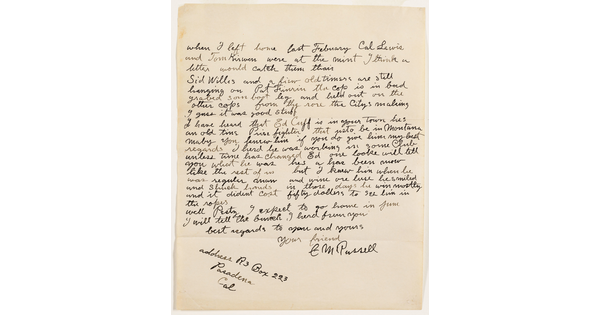 when I left home last February Cal Lewis
and Tom Kirwin were at the mint I think a
letter would catch them thair
Sid Willis and a fiew old timers are still
hanging on Pat the cop is in bad
som boot leg and held out on the
other cops from the rore the Citys making
I gues it was good stuff
I have herd that Ed Cuff is in your town hes
an old time Prise fighter that usto be in Montana
maby you know him if you do give him my best
regards I herd he was working in some Club
unless time has changed Ed one looke will tell
you what he was hes a bar been know
like the rest of us but I knew him when he
was regular man and wine ore luse he smiled
and shuck hands in those days he win mostly
and it dident cost fifty dollars to see him in
the ropes
well I expect to go home in June
I will tell the bunch I herd from you
best regards to you and yours
Your friend
C M Russell
address R3 Box 223
Pasadena
Cal